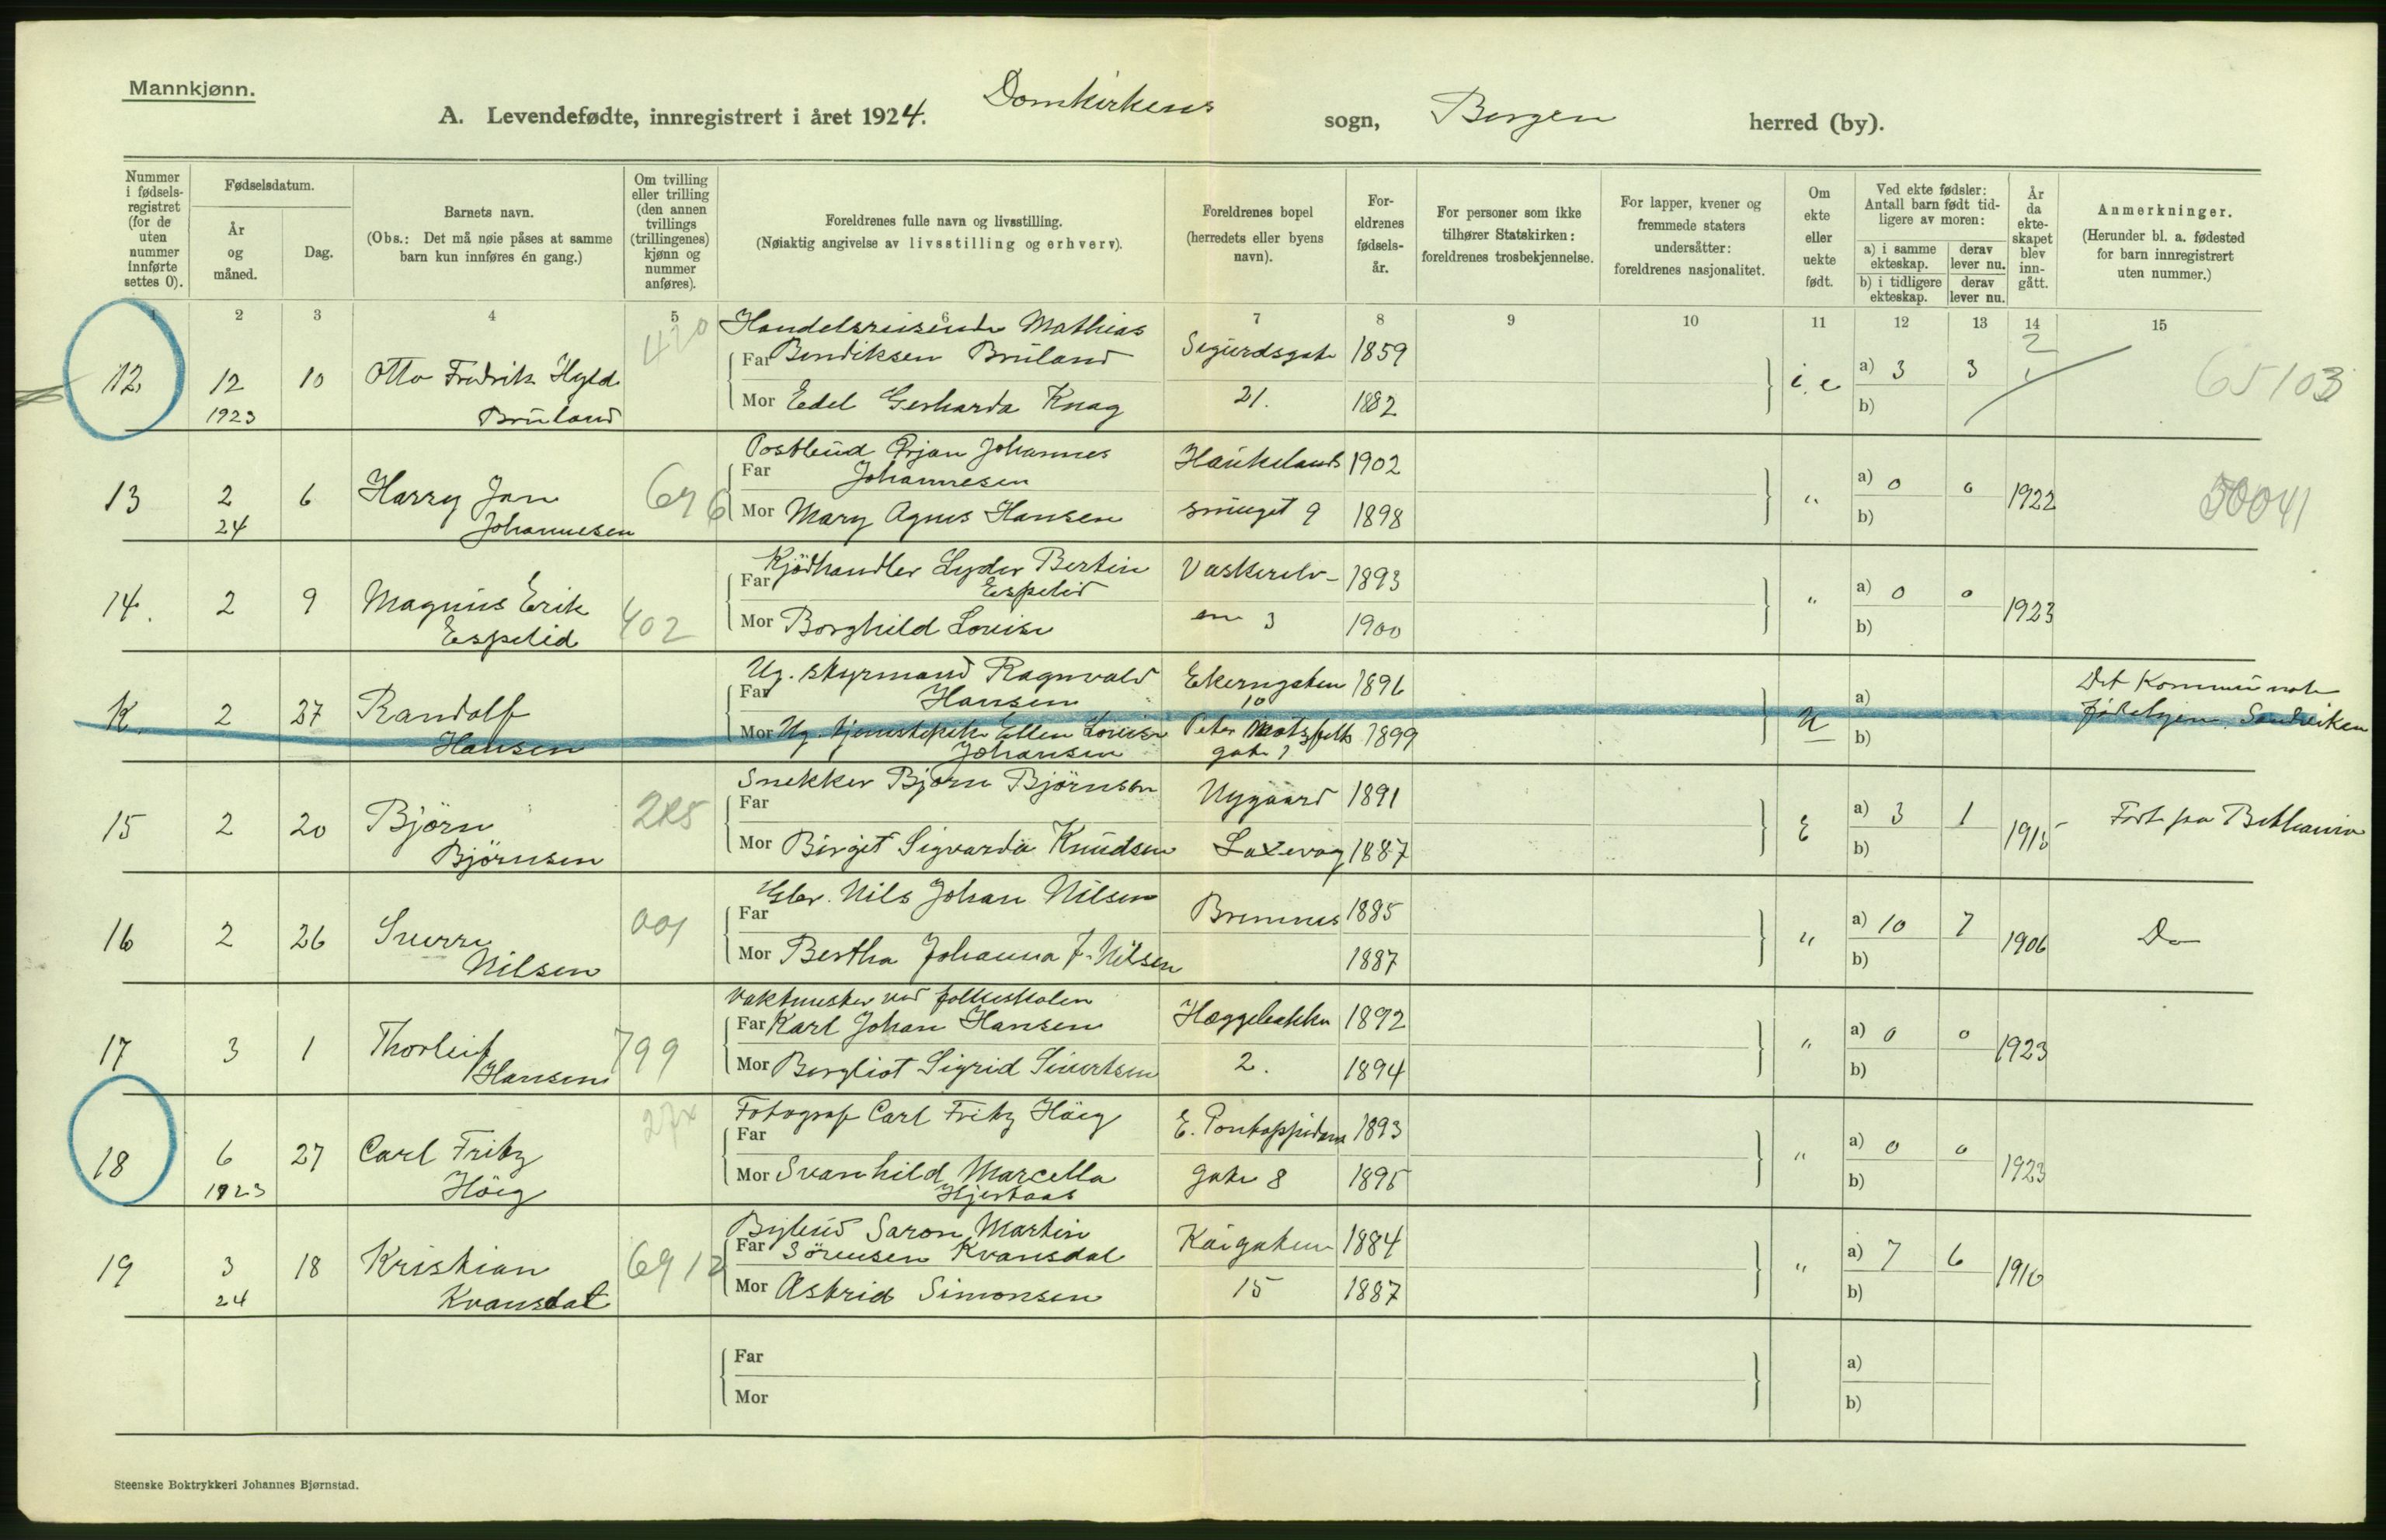 Mannkjønn.
A. Levendefødte, innregistrert i året 1924. Domkirkens sogn, Bergen herred (by).
Nummer i fødselsregistret (for de uten nummer innførte settes 0).
Fødselsdatum.
År og måned.
Dag.
Barnets navn.
(Obs.: Det må nøie påses at samme barn kun innføres én gang.)
Om tvilling eller trilling (den annen tvillings (trillingenes) kjønn og nummer anføres).
Foreldrenes fulle navn og livsstilling.
(Nøiaktig angivelse av livsstilling og erhverv).
Foreldrenes bopel (herredets eller byens navn).
Foreldrenes fødselsår.
For personer som ikke tilhører Statskirken: foreldrenes trosbekjennelse.
For lapper, kvener og fremmede staters undersåtter: foreldrenes nasjonalitet.
Om ekte eller uekte født.
Ved ekte fødsler: Antall barn født tidligere av moren:
a) i samme ekteskap. derav lever nu.
b) i tidligere ekteskap. derav lever nu.
År da ekteskapet blev inngått.
Anmerkninger.
(Herunder bl. a. fødested for barn innregistrert uten nummer.)
1 2 3 4 5 6 7 8 9 10 11 12 13 14 15
Handelsreisende Mathias
12 12 10 Otto Fredrik Hyld Far Bendiksen Bruland Sigurdsgate 1859 i.e a) 3 3 65103
1923 Bruland Mor Edel Gerharda Knag 21. 1882 b)
Postbud Ørjan Johannes
13 2 6 Harry Jan 696 Far Johannesen Haukelands 1902 " a) 0 0 1922 50041
24 Johannesen Mor Mary Agnes Hansen smuget 9 1898 b)
Kjödhandler Lyder Bertin
14. 2 9 Magnus Erik 402 Far Espelid Vaskerelv- 1893 " a) 0 0 1923
Espelid Mor Borghild Louise en 3 1900 b)
Ug. styrmand Ragnvald
K. 2 27 Randolf Far Hansen Ekerngaten 10 1896 U a) Det Kommunale
Hansen Mor Ug. tjenestepike Ellen Louise Peter Motzfelts 1899 b) födehjem Sandviken
Johansen gate 1
Snekker Bjørn Bjørnsen
15 2 20 Björn 285 Far Nygaard 1891 E a) 3 1 1915 Födt paa Bethania
Björnsen Mor Birgit Sigvarda Knudsen Laxevaag 1887 b)
Nils Johan Nilsen
16 2 26 Sverre 001 Far Bremnes 1885 " a) 10 7 1906 Do
Nilsen Mor Bertha Johanna J. Nilsen 1887 b)
Vaktmester ved folkeskolen
17 3 1 Thorleif 799 Far Karl Johan Hansen Hæggebakken 1892 " a) 0 0 1923
Hansen Mor Bergliot Sigrid Sivertsen 2. 1894 b)
Fotograf Carl Fritz Höeg
18 6 27 Carl Fritz 27x Far E. Pontoppidans 1893 " a) 0 0 1923
1923 Höeg Mor Svanhild Marcella gate 8 1895 b)
Hjertaas
Bybud Saron Martin
19 3 18 Kristian 6912 Far Sörensen Kvansdal Kaigaten 1884 " a) 7 6 1910
24 Kvansdal Mor Astrid Simonsen 15 1887 b)
Far a)
Mor b)
Steenske Boktrykkeri Johannes Bjørnstad.